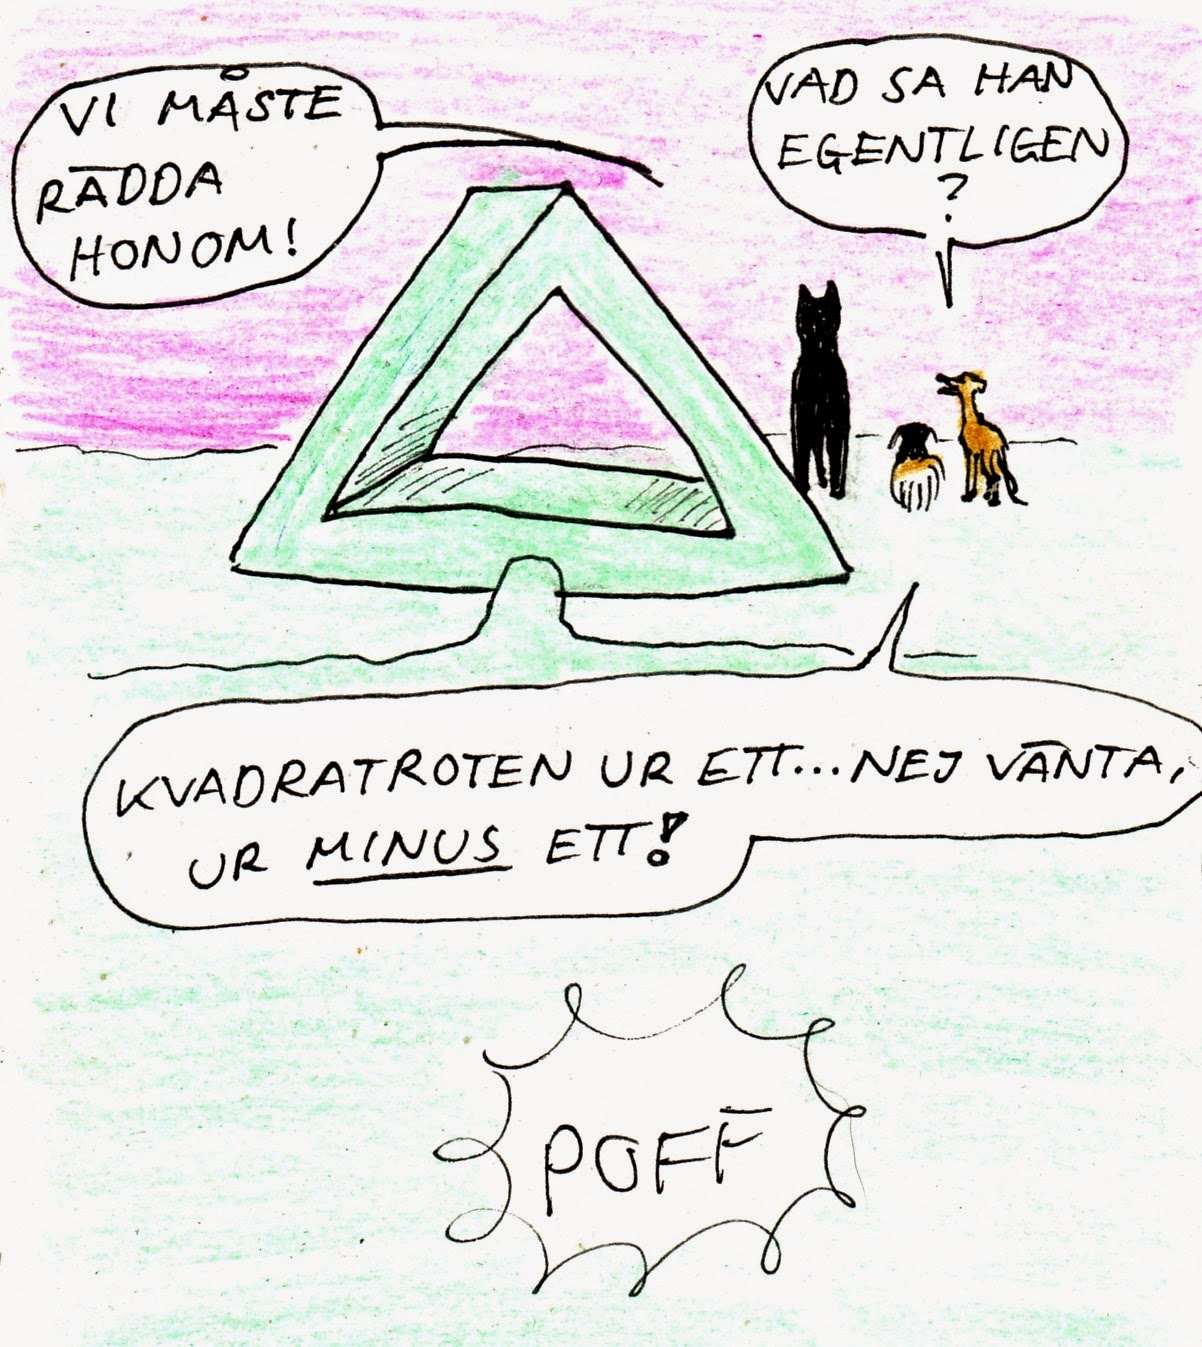 VI MÅSTE
RÄDDA
HONOM!
VAD SA HAN
EGENTLIGEN
?
KVADRATROTEN UR ETT...NEJ VÄNTA,
UR MINUS ETT!
POFF